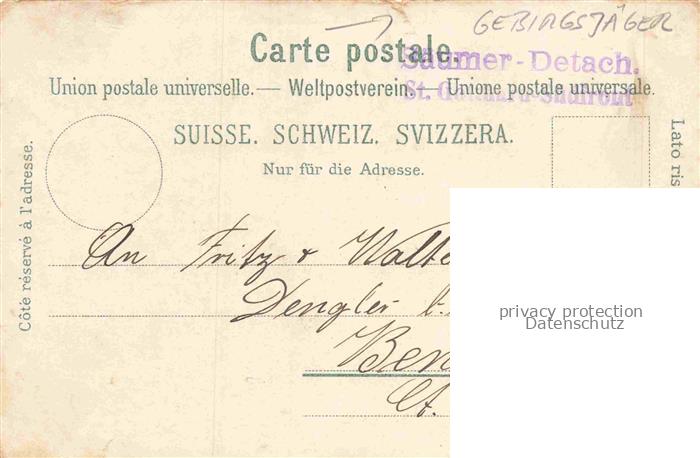 GEBIRGSJÄGER
Carte postale.
Säumer-Detach.
Union postale universelle. — Weltpostverein. — Unione postale universale.
St. Gotthard-Südfront
SUISSE. SCHWEIZ. SVIZZERA.
Nur für die Adresse.
Côté réservé à l'adresse.
Lato ris
An Fritz & Walte
Dengler b.
Ben
Ct.
privacy protection
Datenschutz